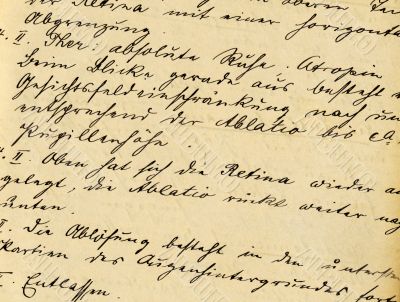 der Retina mit einer horizonta
Abgrenzung.
4. II. Ther: absolute Ruhe. Atropin
Beim Blicke gerade aus besteht
Gesichtsfeldeinschränkung nach un
entsprechend der Ablatio bis ca.
Pupillenhöhe.
II. Oben hat sich die Retina wieder a
gelegt, die Ablatio rückt weiter na
unten.
II. Die Ablösung besteht in den untersten
Partien des Augenhintergrundes fort
Entlassen.